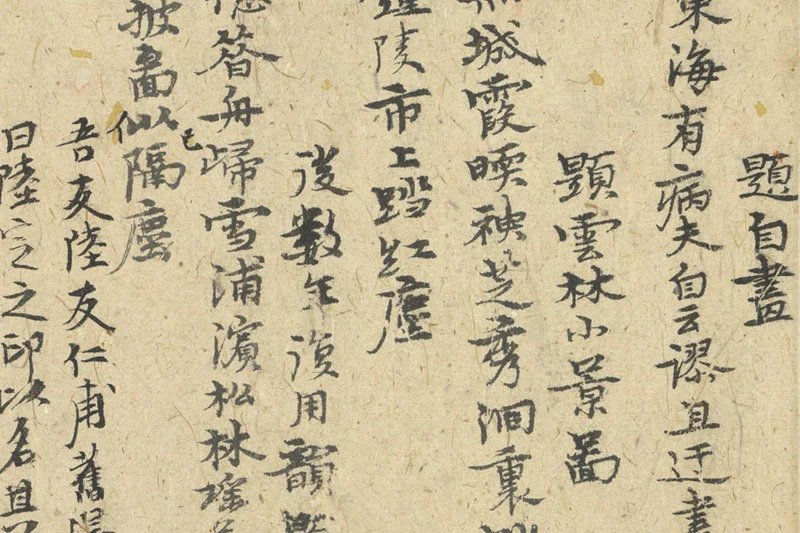 題自畫
東海有病夫自云謬且迂書
題雲林小景畵
城霞暎袂芝秀澗裏
陵市上踏紅塵
後數年復用韻
憶荅舟歸雪浦濱松林瑤
披畵似隔塵
吾友陸友仁甫舊
曰陸定之印以名且